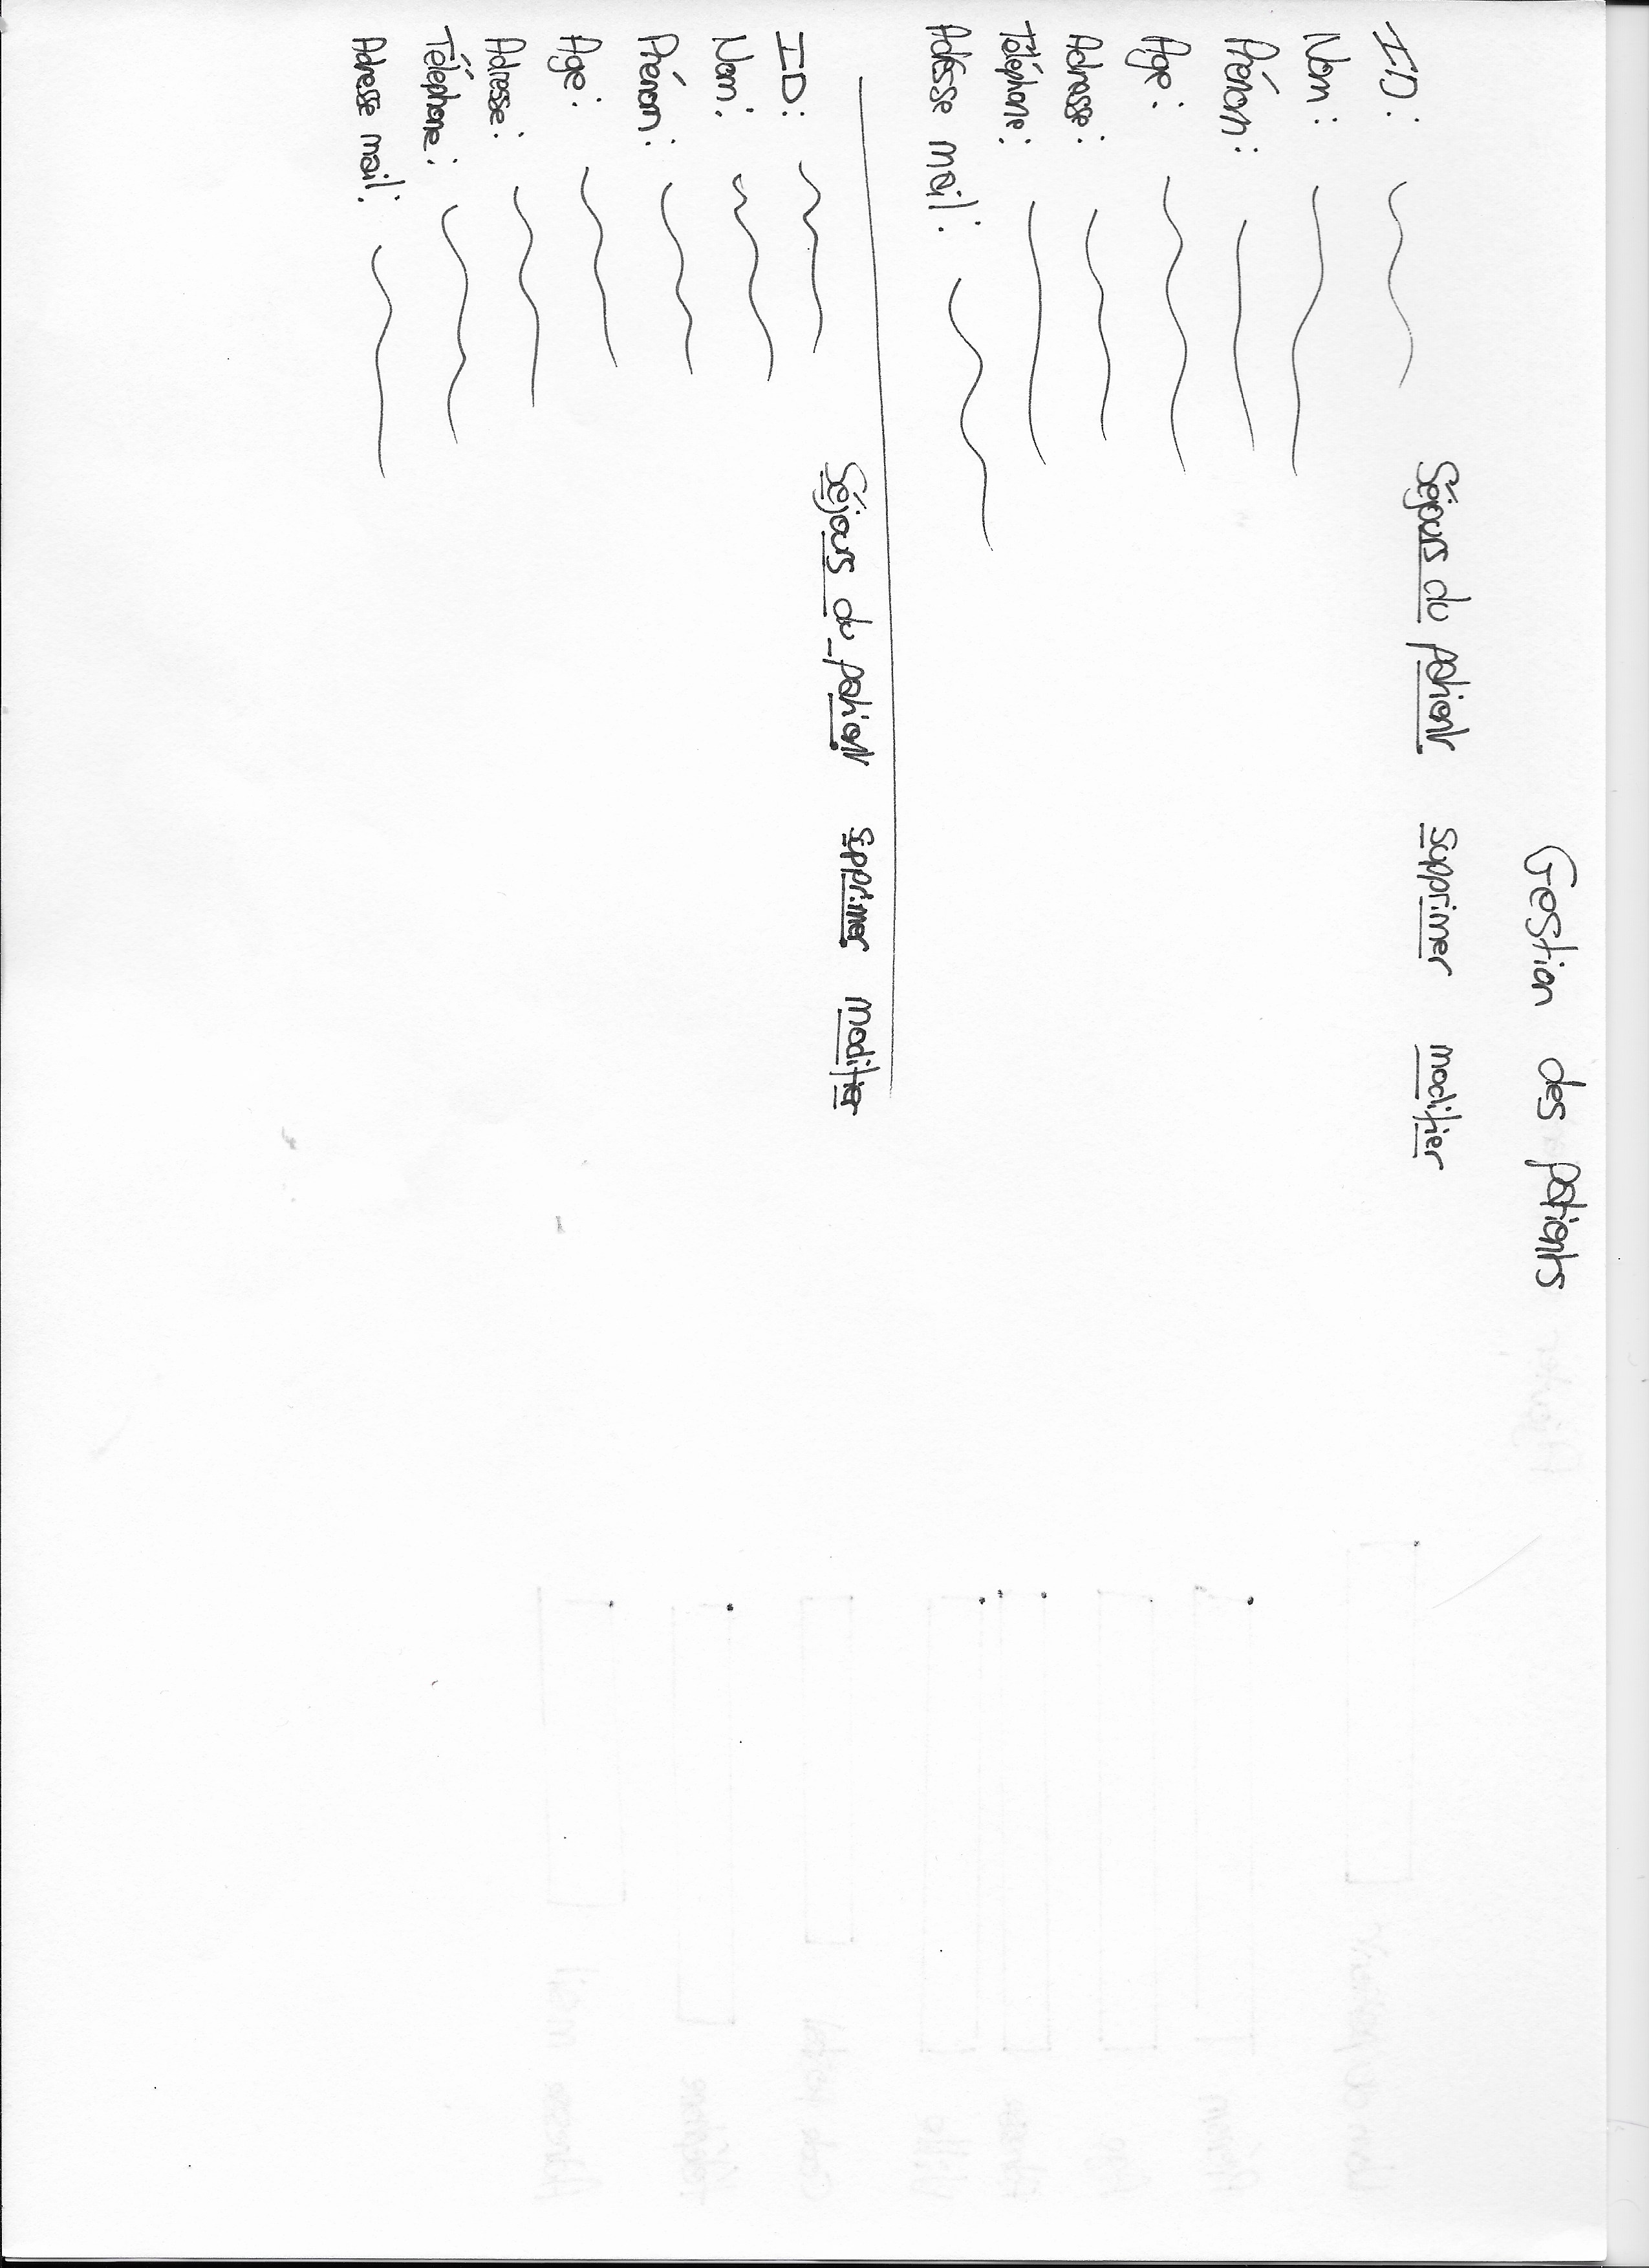 Gestion des patients
Séjours du patient supprimer modifier
ID:
Nom:
Prénom:
Age:
Adresse:
Téléphone:
Adésse mail:
Séjours du patient supprimer modifier
ID:
Nom:
Prénom:
Age:
Adresse:
Téléphone:
Adresse mail: